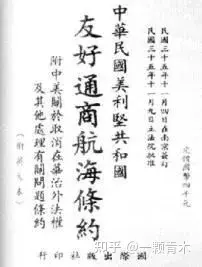 民國三十五年十一月四日在南京簽訂
民國三十五年十一月九日立法院批准
中華民國美利堅共和國
友好通商航海條約
附中美關於取消在華治外法權
及其他處理有關問題條約
(附英文本)
定價國幣四千元
國際出版社印行
知乎 @一颗青木